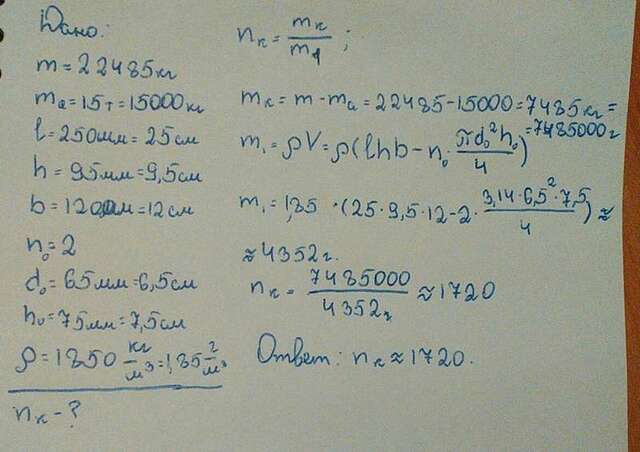 Дано:
m = 22485кг
mа = 15т = 15000кг
l = 250мм = 25см
h = 95мм = 9,5см
b = 120мм = 12см
n₀ = 2
d₀ = 65мм = 6,5см
h₀ = 75мм = 7,5см
ρ = 1850 кг/м³ = 1,85 г/м³
nк - ?
nк = mк/m1 ;
mк = m - mа = 22485 - 15000 = 7485кг =
= 7485000г
m₁ = ρV = ρ(lhb - n₀ πd₀²h₀/4)
m₁ = 1,85 · (25 · 9,5 · 12 - 2 · 3,14 · 6,5² · 7,5/4) ≈
≈ 4352г.
nк = 7485000/4352г ≈ 1720
Ответ: nк ≈ 1720.